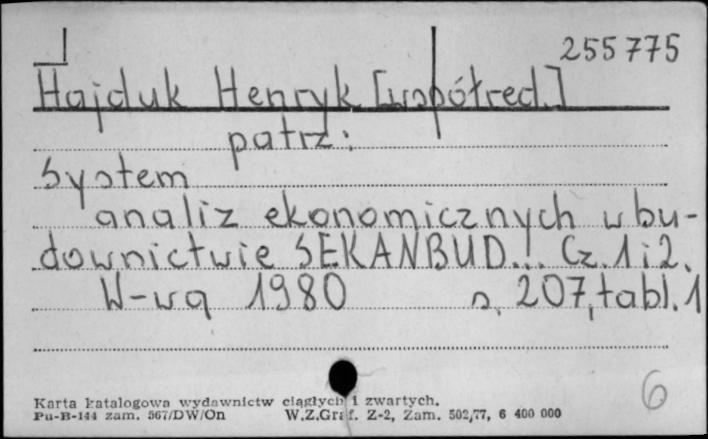 255775
Hajduk Henryk [współred.]
patrz:
System
analiz ekonomicznych w bu-
downictwie SEKANBUD... Cz. 1 i 2.
W-wa 1980 s. 207, tabl. 1
6
Karta katalogowa wydawnictw ciągłych i zwartych.
Pu-B-144 zam. 567/DW/On W.Z.Graf. Z-2, Zam. 502/77, 6 400 000